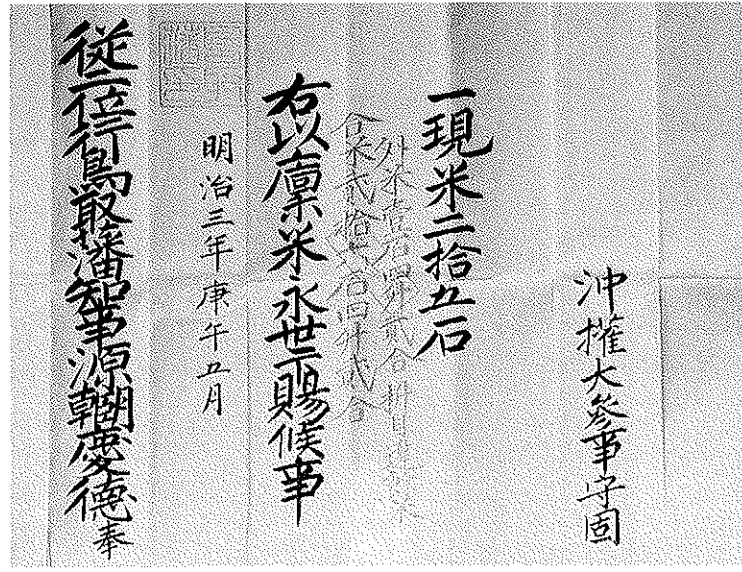 沖權大參事守固
一現米二拾五石
外米壹石四舛貳合
合米貳拾六石四舛貳合
右以廩米永世下賜候事
明治三年庚午五月
従二位行鳥取藩知事源朝臣慶德奉